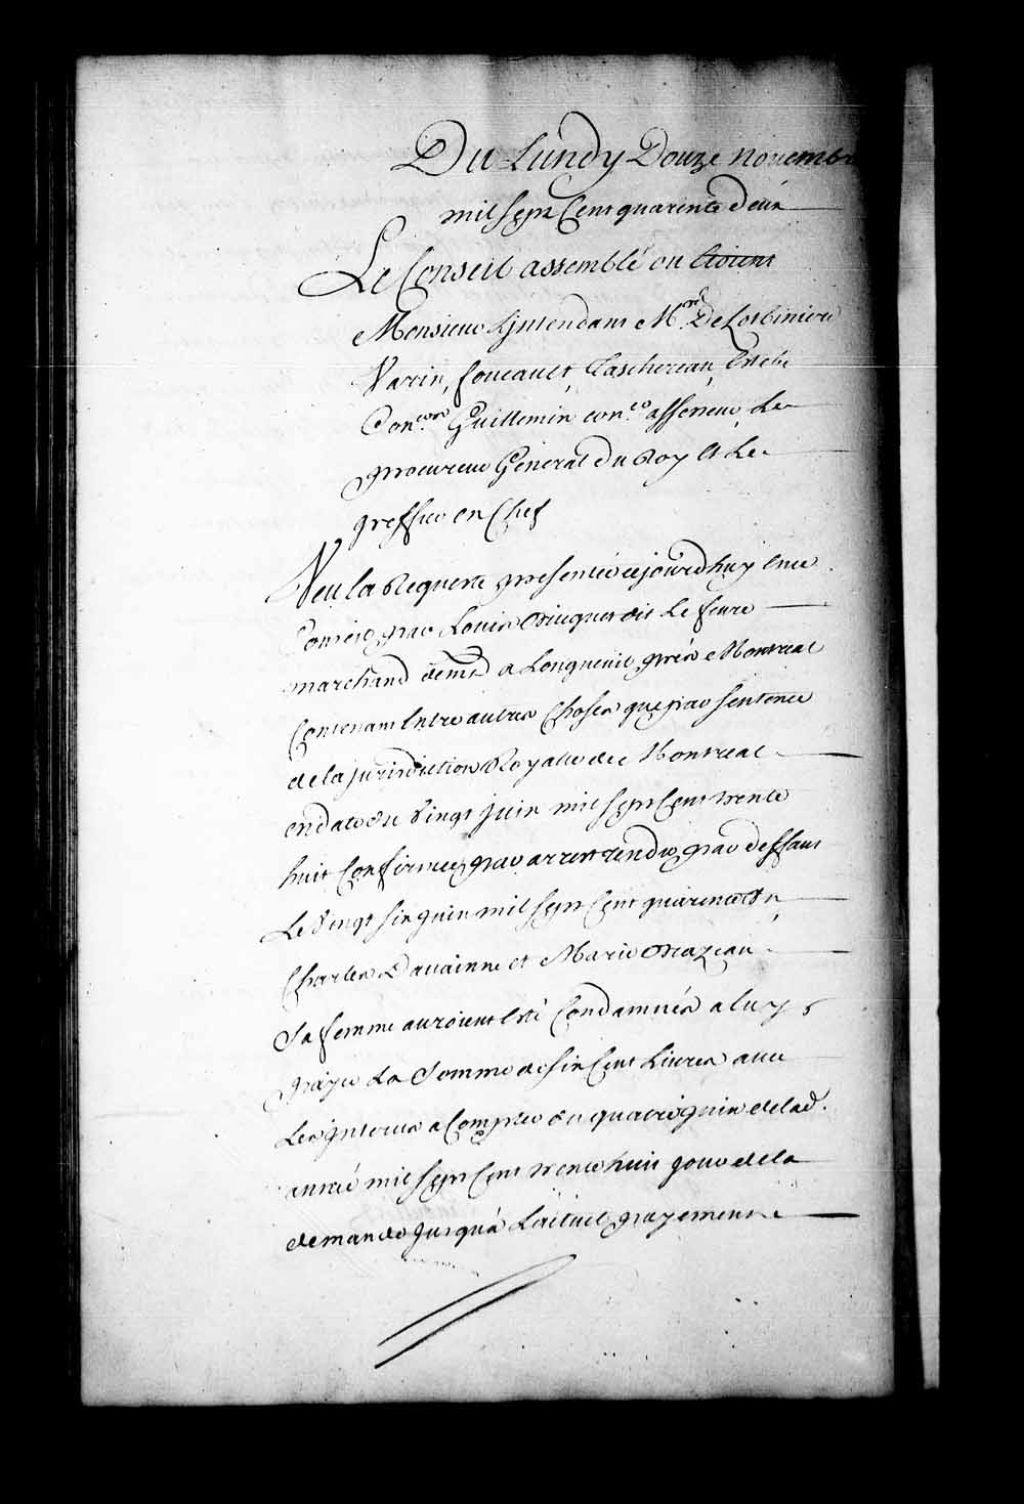 Du Lundy Douze novembre
mil sept Cent quarente deux
Le Conseil assemblé ou Etoient
Monsieur L'jntendant Mre De Lotbiniere
Varin, foucault, Taschereau, Estebe
Con.ers Guillemin con.er assesseur, Le
procureur General du Roy Et Le
greffier en Chef
Veu la Requeste presentée cejourd'huy En ce
Conseil par Louis dit Le fevre
marchand demt a Longueuil près Montreal
Contenant Entre autres Choses que par sentence
de la jurisdiction Royalle de Montreal
en datte du Vingt juin mil sept Cent trente
huit Confirmée par arrest rendu par deffaut
Le Vingt six juin mil sept Cent quarente Un
Charles Davainne et Marie
Sa femme auroient Eté Condamnés a luy
payer La Somme de six Cent Livres avec
Les jnterets a Compter du quatre juin de lad.
année mil sept Cent trente huit jour de la
demande jusqu'a L'actuel payement